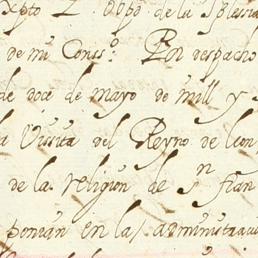 xpto L. obpo de la Iglesia
de mi Conss.º En despacho
de doce de mayo de mill y s
a Vissita del Reyno de leon
de la religion de s.n fran
ponian en la administraci